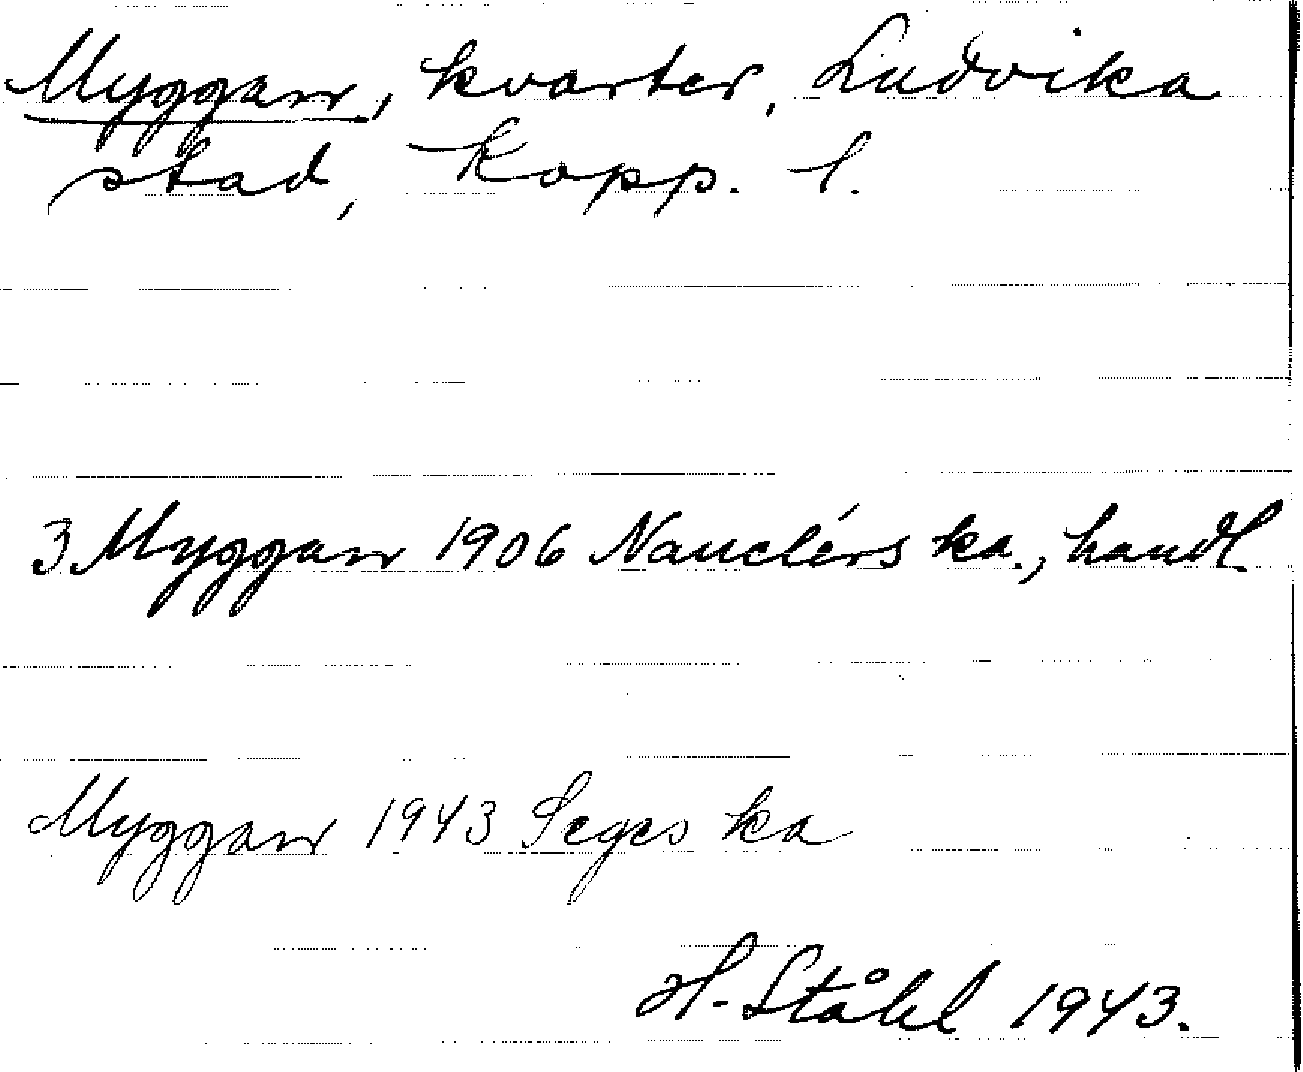 Myggan, kvarter, Ludvika
stad, Kopp. l.
3 Myggan 1906 Nauclérs ka., handl
Myggan 1943 Seges ka
H. Ståhl 1943.